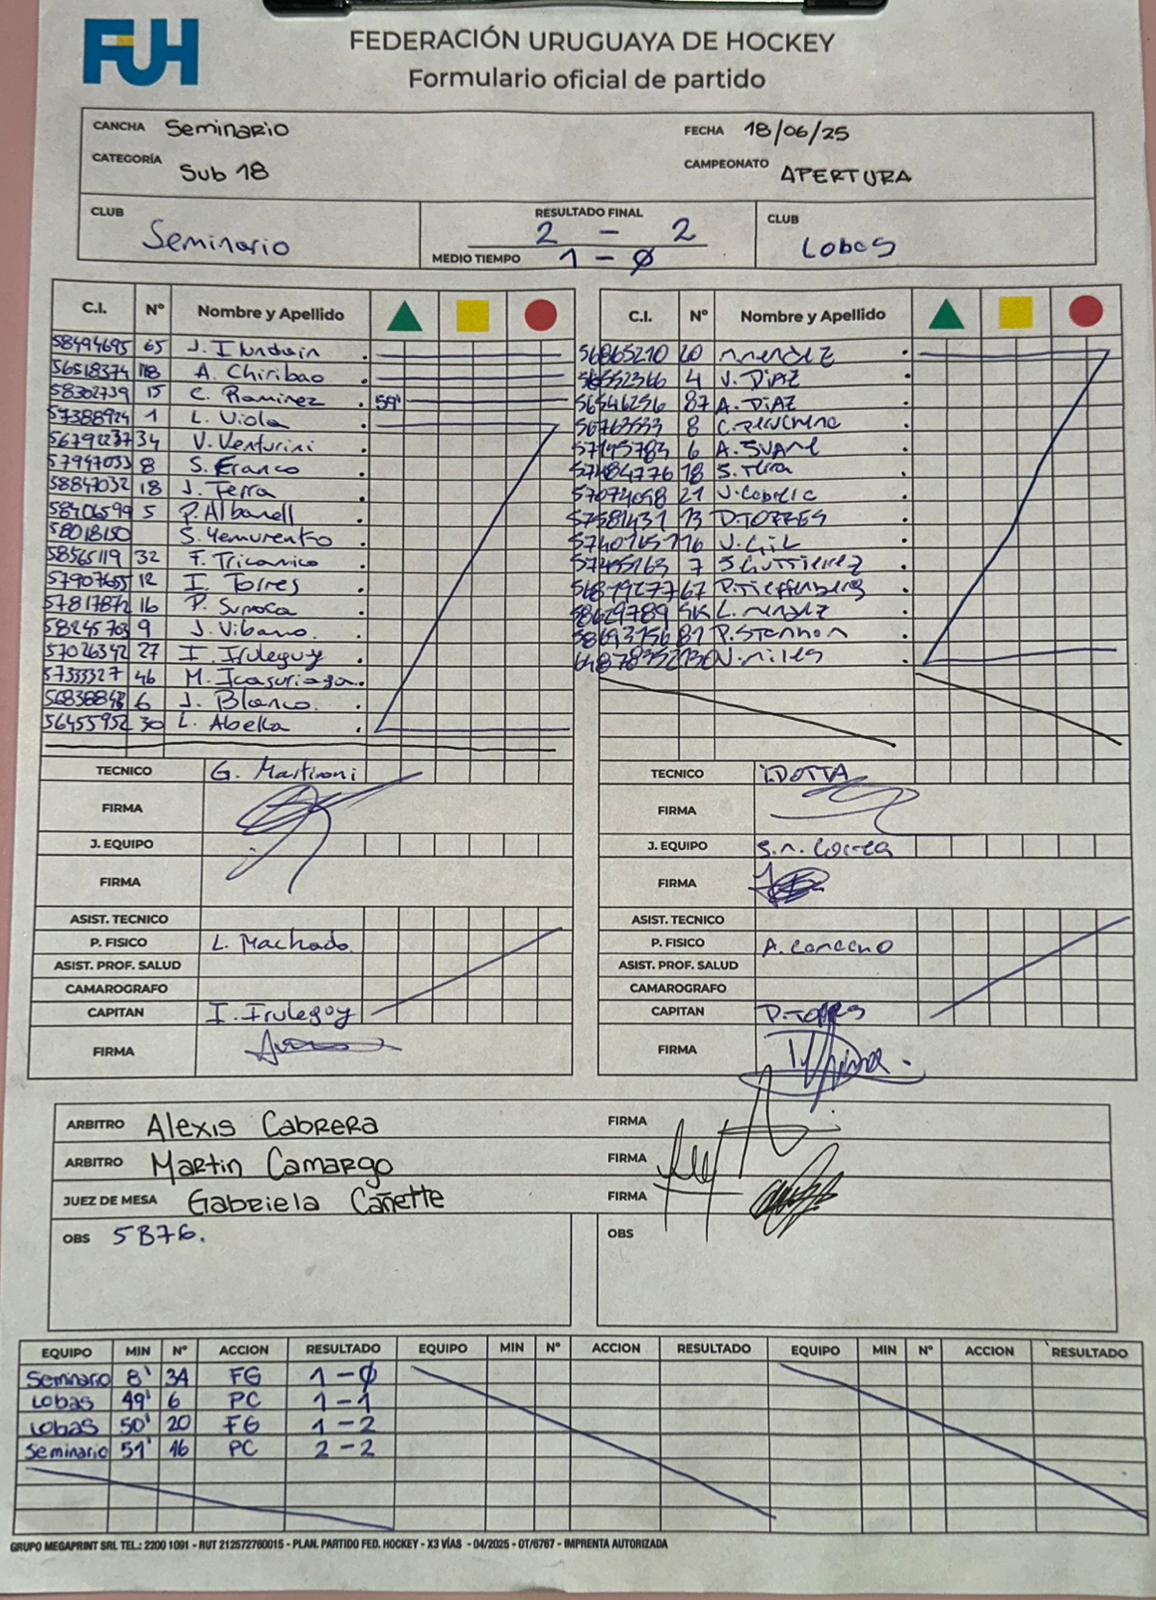 FUH
FEDERACIÓN URUGUAYA DE HOCKEY
Formulario oficial de partido
CANCHA Seminario FECHA 18/06/25
CATEGORÍA Sub 18 CAMPEONATO APERTURA
CLUB Seminario RESULTADO FINAL 2 - 2 CLUB Lobas
MEDIO TIEMPO 1 - 0
C.I. Nº Nombre y Apellido C.I. Nº Nombre y Apellido
58494695 65 J. 56865210 20 M. MENDEZ
56518374 118 A. Chiribao 4 V. DIAZ
58302739 15 C. Ramirez 59' 56546256 87 A. DIAZ
57388924 1 L. Viola 8 C.
34 V. Venturini 6 A.
57947033 8 S. Franco 57484776 18 S.
58847032 18 J. Ferra 57074098 21 J.
58406599 5 P. Albanell 57581431 13 D. TORRES
58018150 S. V. GIL
58565119 32 F. Triconico 7 S. GUTTIERREZ
57907655 12 I. Torres 67 P. Tieffenberg
57817872 16 P. 58629789 GK L. MENDEZ
58245703 9 J. Vibano. P.
57026342 27 I. Iruleguy V. miles
57333327 46 M. Icasuriaga.
6 J. Blanco.
56455952 30 L. Abella
TECNICO G. Martironi TECNICO I. DOTTA
FIRMA FIRMA
J. EQUIPO J. EQUIPO S.M. Correa
FIRMA FIRMA
ASIST. TECNICO ASIST. TECNICO
P. FISICO L. Machado. P. FISICO A.
ASIST. PROF. SALUD ASIST. PROF. SALUD
CAMAROGRAFO CAMAROGRAFO
CAPITAN I. Iruleguy CAPITAN D. TORRES
FIRMA FIRMA
ARBITRO Alexis Cabrera FIRMA
ARBITRO Martin Camargo FIRMA
JUEZ DE MESA Gabriela Cañette FIRMA
OBS 5B76. OBS
EQUIPO MIN Nº ACCION RESULTADO EQUIPO MIN Nº ACCION RESULTADO EQUIPO MIN Nº ACCION RESULTADO
Seminario 8' 34 FG 1 - 0
Lobas 49' 6 PC 1 - 1
Lobas 50' 20 FG 1 - 2
Seminario 51' 46 PC 2 - 2
GRUPO MEGAPRINT SRL TEL.: 2200 1091 - RUT 212572760015 - PLAN. PARTIDO FED. HOCKEY - X3 VÍAS - 04/2025 - OT/6767 - IMPRENTA AUTORIZADA